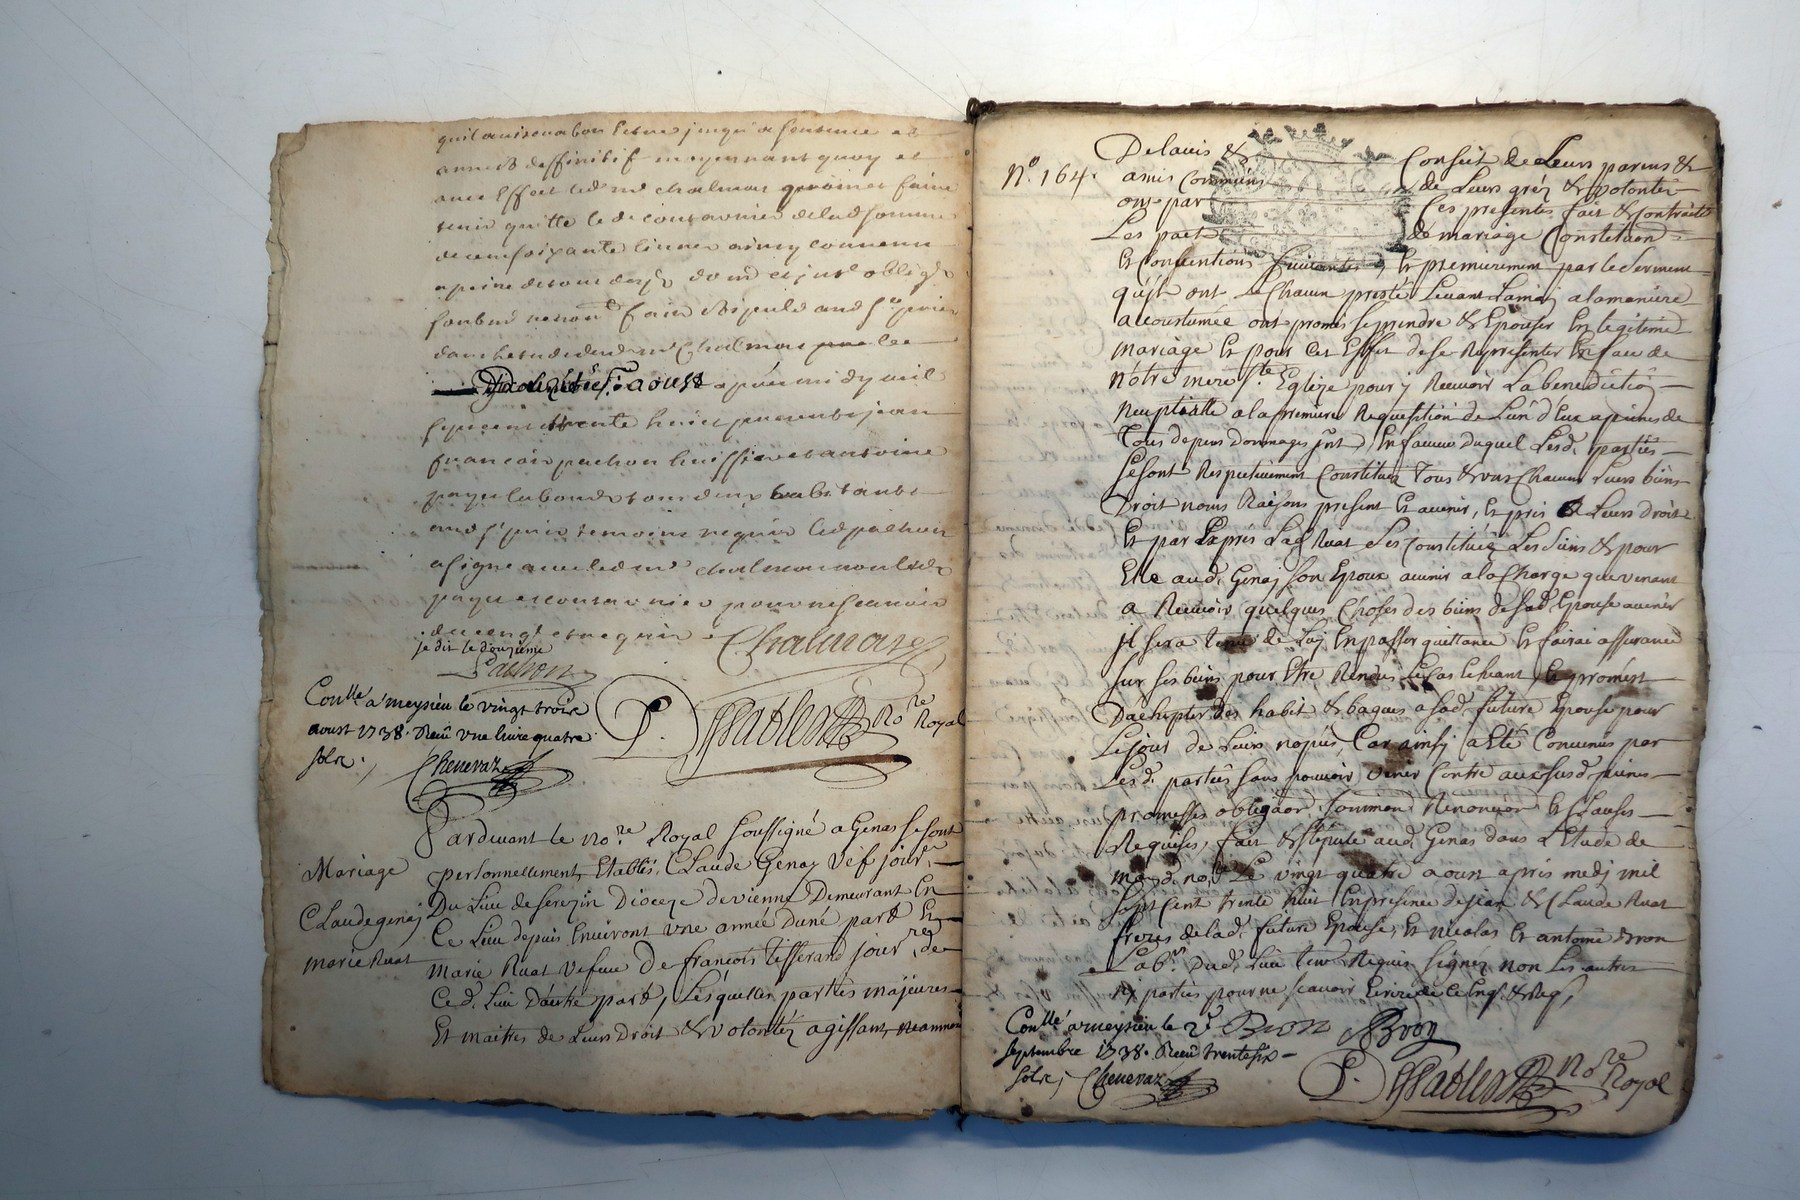 quil auisera bon estre jusqua sentence et
arrest deffinitif moyennant quoy et
auec effect led. mr chalmas promet faire
tenir quitte le d. coutavnier de lad. somme
de cent soixante liures ainsy convenu
a peine de tous desp.
fait & stipulé aud. st priest
dans l'estude dud. mr Chalmas le
aoust apres midy mil
sept cent trente huict presents jean
françois pachon huissier et antoine
paque laboureur tous deux habitants
aud. st priest temoins requis led. pachon
a signe auec led. mr chalmas non led.
paque et coutavnier pour ne scavoir
de ce enquis et requis Chalmas
je dis le douzieme
Pachon
Conllé a meysieu le vingt trois
aoust 1738. Receu vne liure quatre
sols.
Chenevaz
P. nore Royal
Pardeuant le nore. Royal soussigné a Genas se sont
Mariage
Claude genaj
marie Ruat
personnellement Etablis, Claude Genaj vef jour.r
Du Lieu de serezin Dioceze de vienne Demeurant En
Ce Lieu depuis Enuiront vne année d'une part Et
Marie Ruat vefue De francois tisserand jour.re de
Ce d. Lieu D'autre part, Lesquelles parties majeures
Et maitres de Leurs Droit & volontéz agissant, neanmoin
No. 164.
De lauis & Conseit de Leurs parens &
amis communs de Leurs gréz & volontéz
ont par Ces presentes fait & contraité
Les pact de mariage Constitution
Et Conuentions suiuantes, Et premierement par le serment
qu'ils ont Chacun presté Leuant La main a la maniere
accoustumée ont promis se prendre & Epouser En legitime
mariage Et pour Cet Effet de se Representer En face de
nôtre mere Ste. Eglize pour y Receuoir La benediction
neuptialle a la premiere Requesition de L'un d'Eux a peines de
Tous depens dommages jnt, En faueur duquel Lesd. parties
se sont Respectiuement Constituez Tous & vns Chacuns Leurs biens
Droit noms Raisons present Et auenir, Et pris & Leurs droit
Et par Exprés Lad. Ruat s'est Constituéz Les siens & pour
Elle aud. Genaj son Epoux auenir a la Charge que venant
a Receuoir quelques Choses des biens de sad. Epouse auenir
jl sera tenu de Luy En passer quittance Et faire assurance
sur ses biens pour Etre Rendus Le Cas Echeant, Et promest
D'achepter des habit & bagues a sad. future Epouse pour
Le jour de Leurs nopces, Car ainsy a Eté Conuenus par
Lesd. parties sans pouuoir venir Contre aux susd. peines
promesses obligaon. soumons. Renonciaon. Et Clauses
Requises, fait & stipulé aud. Genas dans L'Etude de
moyd. nore. Le vingt quatre aoust après medy mil
sept Cent trente huit En presence de jean & Claude Ruat
freres de lad. future Epouse, Et nicolas Et antoine Bron
Labrs. Dud. Lieu tem. Requis signéz non Les autres
ny parties pour ne scauoir Ecrire de Ce Enq. & Req.
Conllé a meysieu le 2e Bron ABron
septembre 1738. Receu trente six
sols, Chenevaz
P. nore Royal